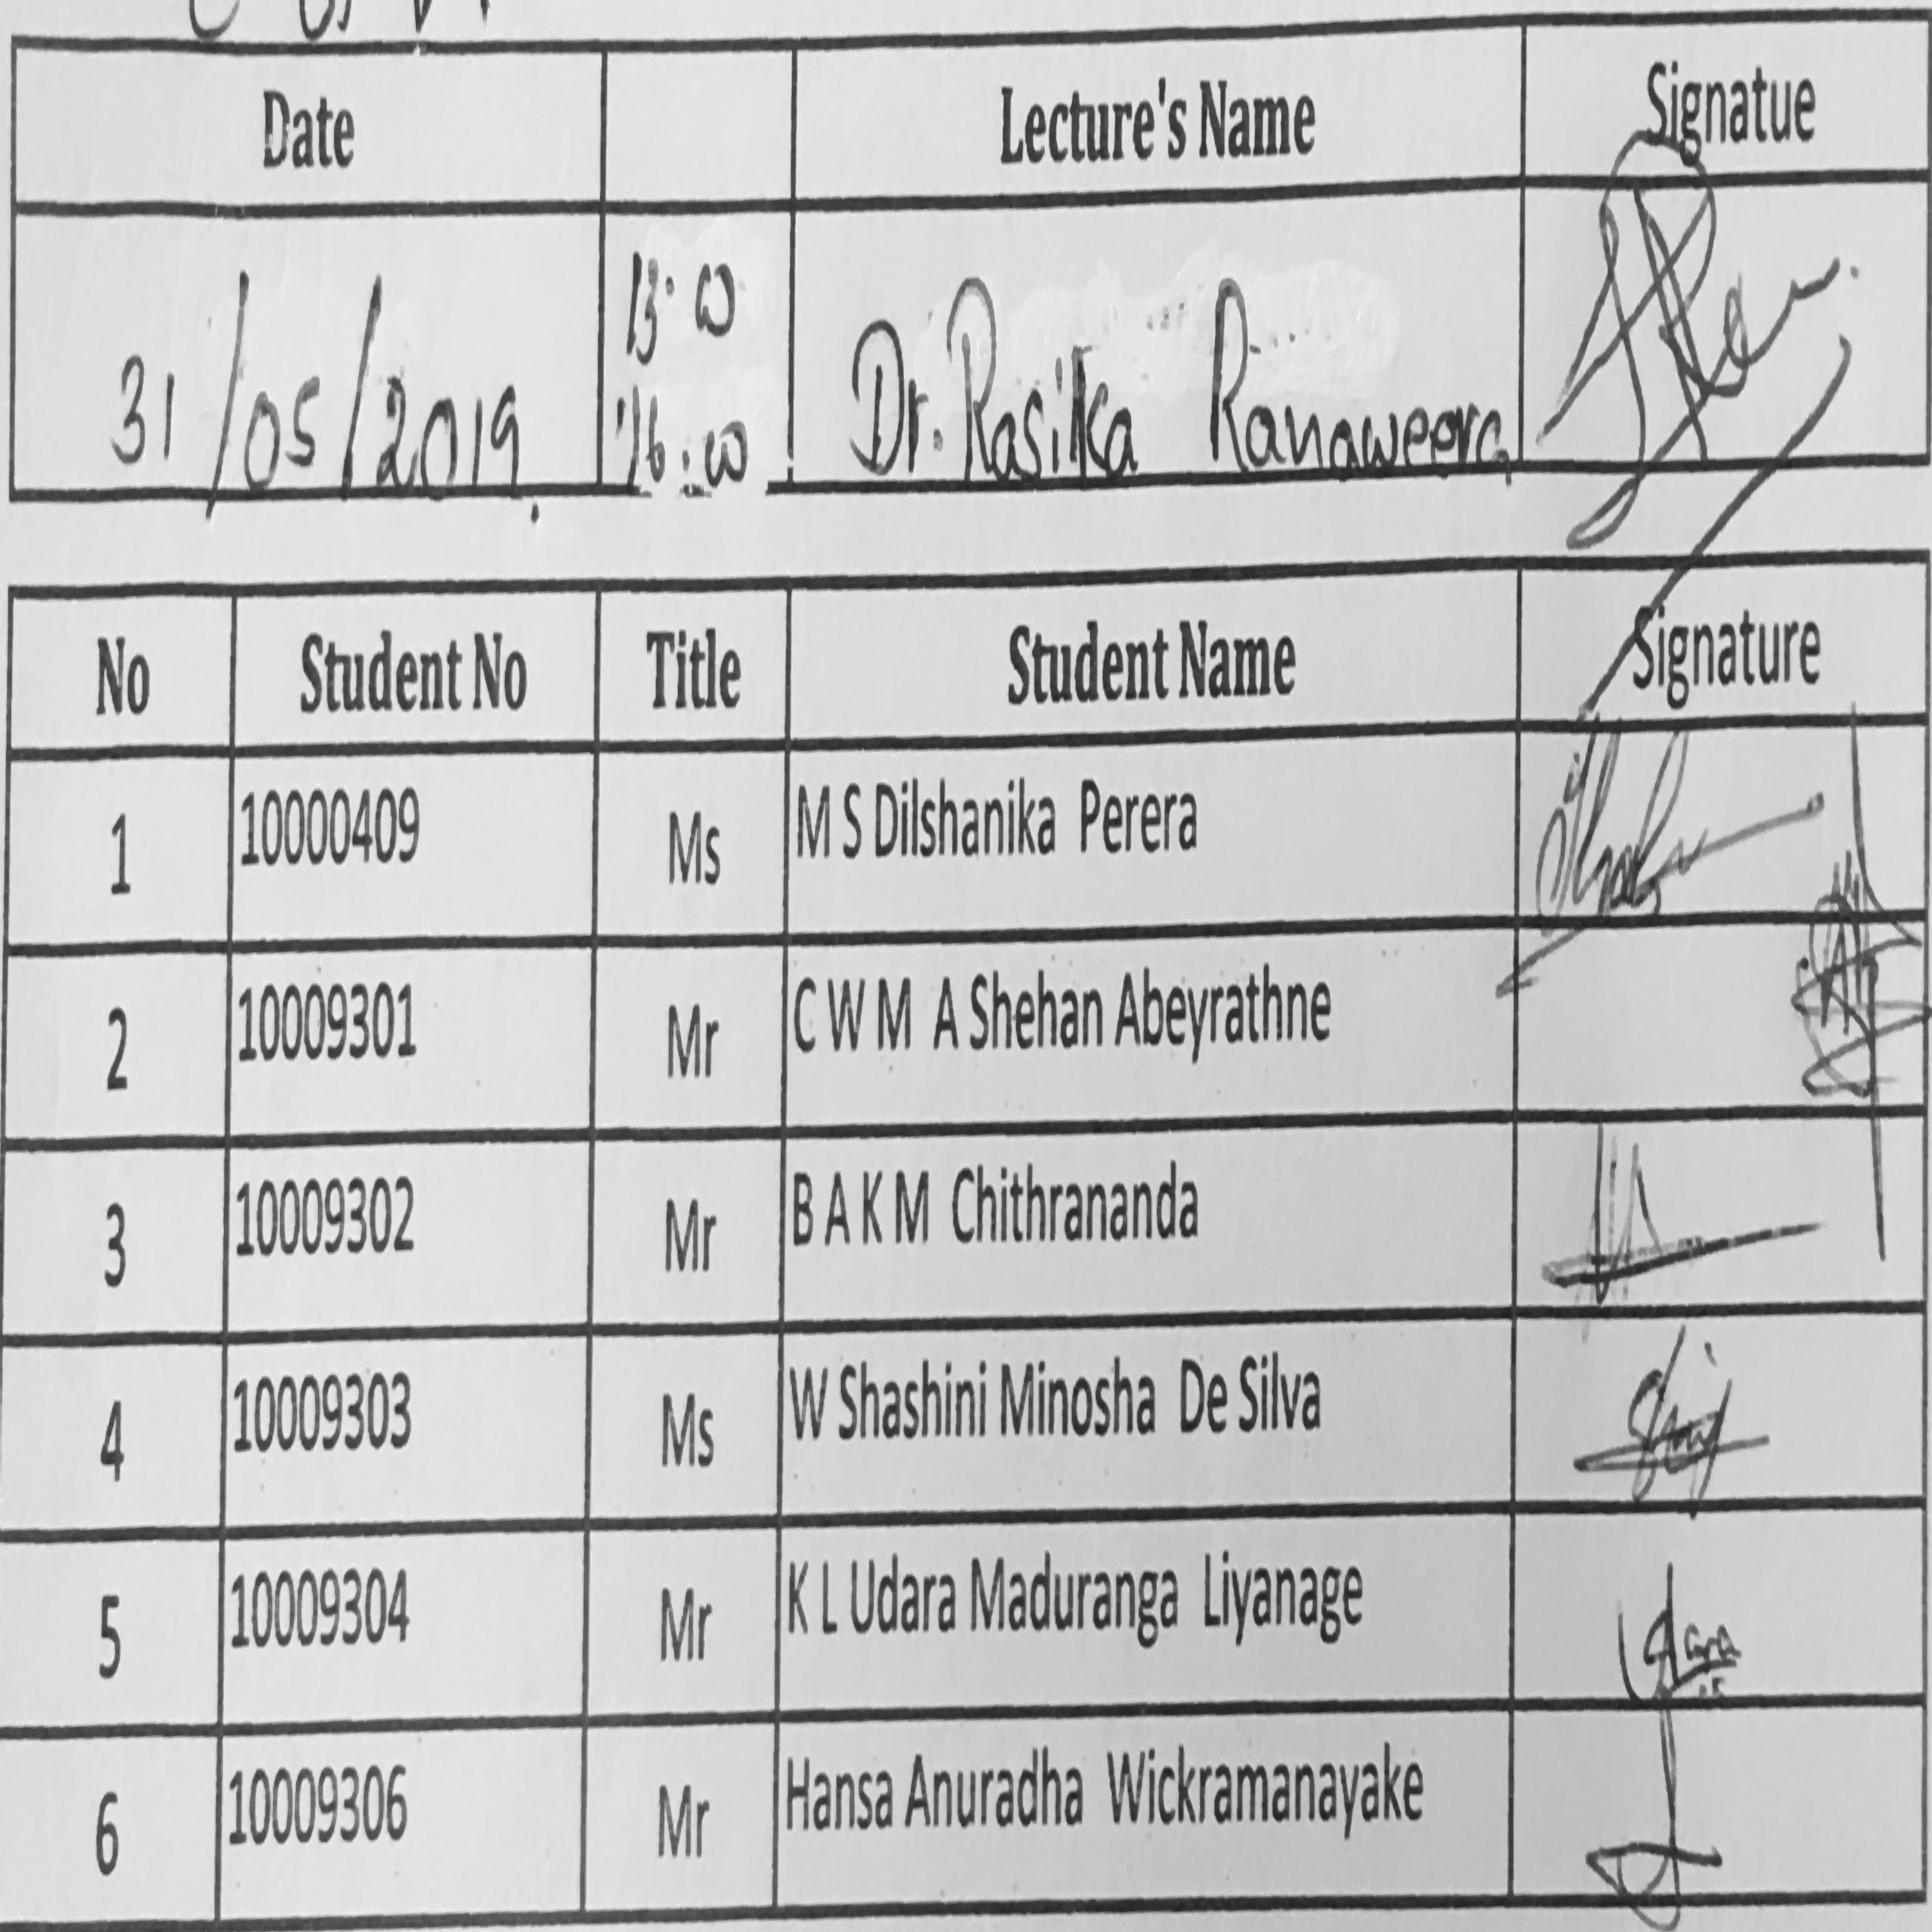 Date Lecture's Name Signatue
13:00
31/05/2019. 16:00 Dr. Rasika Ranaweera
No Student No Title Student Name Signature
1 10000409 Ms M S Dilshanika Perera
2 10009301 Mr C W M A Shehan Abeyrathne
3 10009302 Mr B A K M Chithrananda
4 10009303 Ms W Shashini Minosha De Silva
5 10009304 Mr K L Udara Maduranga Liyanage
6 10009306 Mr Hansa Anuradha Wickramanayake